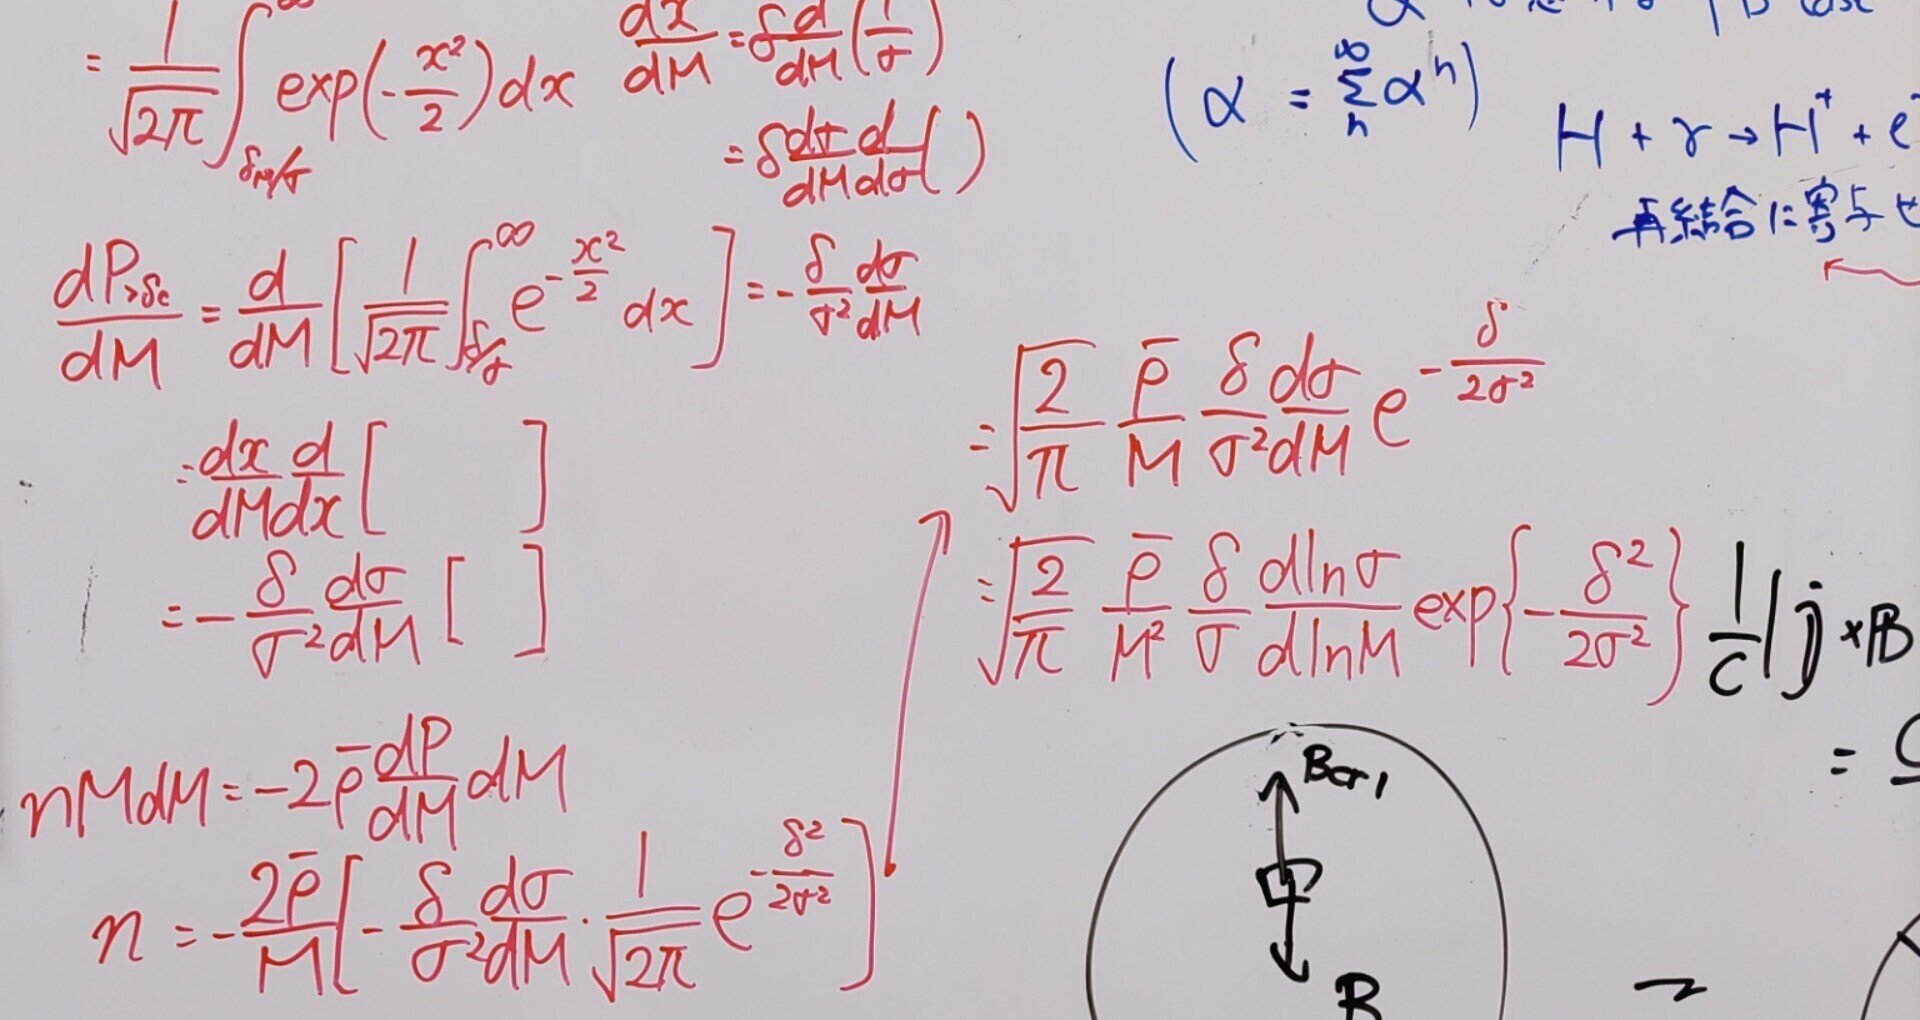 = 1/√2π ∫_{δ_M/σ}^∞ exp(-x²/2) dx
dx/dM = δ d/dM (1/σ)
= δ dσ/dM d/dσ ( )
dP_{>δc}/dM = d/dM [ 1/√2π ∫_{δ/σ}^∞ e^{-x²/2} dx ] = - δ/σ² dσ/dM
= dx/dM d/dx [ ]
= - δ/σ² dσ/dM [ ]
nMdM = -2ρ̄ dP/dM dM
n = - 2ρ̄/M [ - δ/σ² dσ/dM · 1/√2π e^{-δ²/2σ²} ]
= √2/π ρ̄/M δ/σ² dσ/dM e^{-δ/2σ²}
= √2/π ρ̄/M² δ/σ dlnσ/dlnM exp{ -δ²/2σ² }
(α = Σ_n^∞ α^n)
H + γ → H⁺ + e⁻
再結合に寄与せ
1/c | j × B
=
Bcr1
B